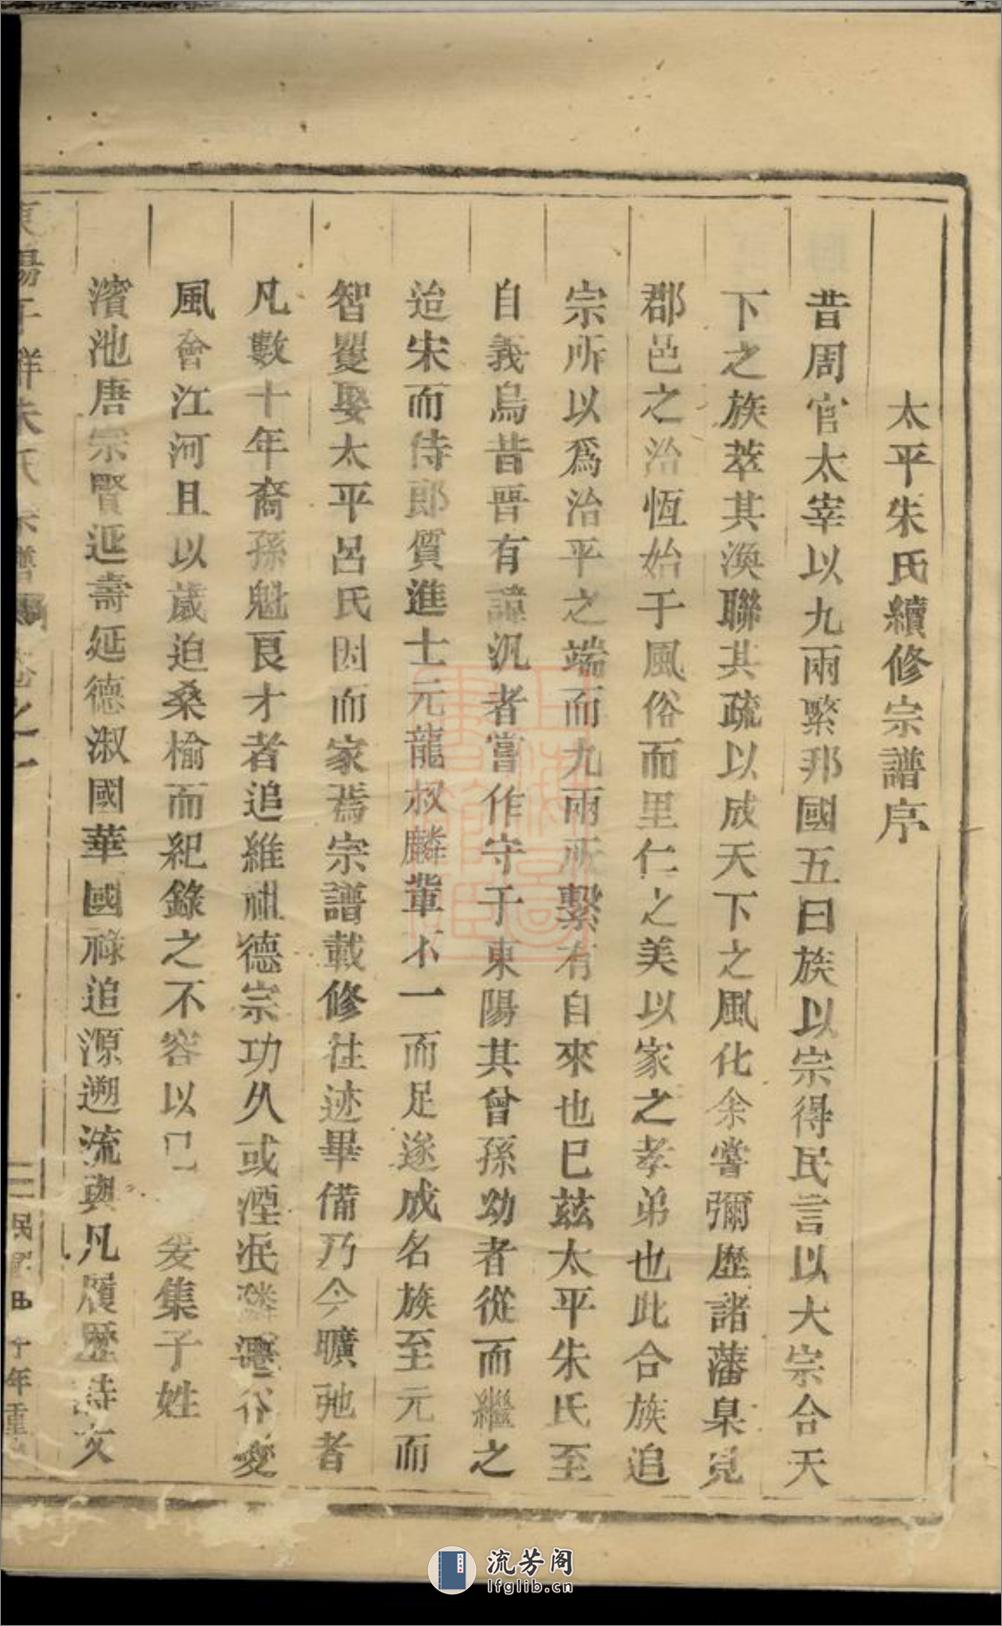 太平朱氏續修宗譜序
昔周官太宰以九兩繫邦國五曰族以宗得民言以大宗合天
下之族萃其渙聯其疏以成天下之風化余嘗彌歷諸藩臬見
郡邑之治恆始于風俗而里仁之美以家之孝弟也此合族追
宗所以爲治平之端而九兩所繫有自來也巳茲太平朱氏至
自義烏昔晉有諱汎者嘗作守于東陽其曾孫幼者從而繼之
迨宋而侍郎質進士元龍叔麟輩不一而足遂成名族至元而
智翼娶太平呂氏因而家焉宗譜載修往迹畢備乃今曠弛者
凡數十年裔孫魁艮才者追維祖德宗功久或湮泯遷谷變
風會江河且以歲迫桑榆而紀錄之不容以已爰集子姓
濱池唐宗賢延壽延德淑國華國祿追源遡流與凡履歷詩文
東陽千祥朱氏宗譜卷之一
民十年重
上海圖書館藏
流芳阁
lfglib.cn